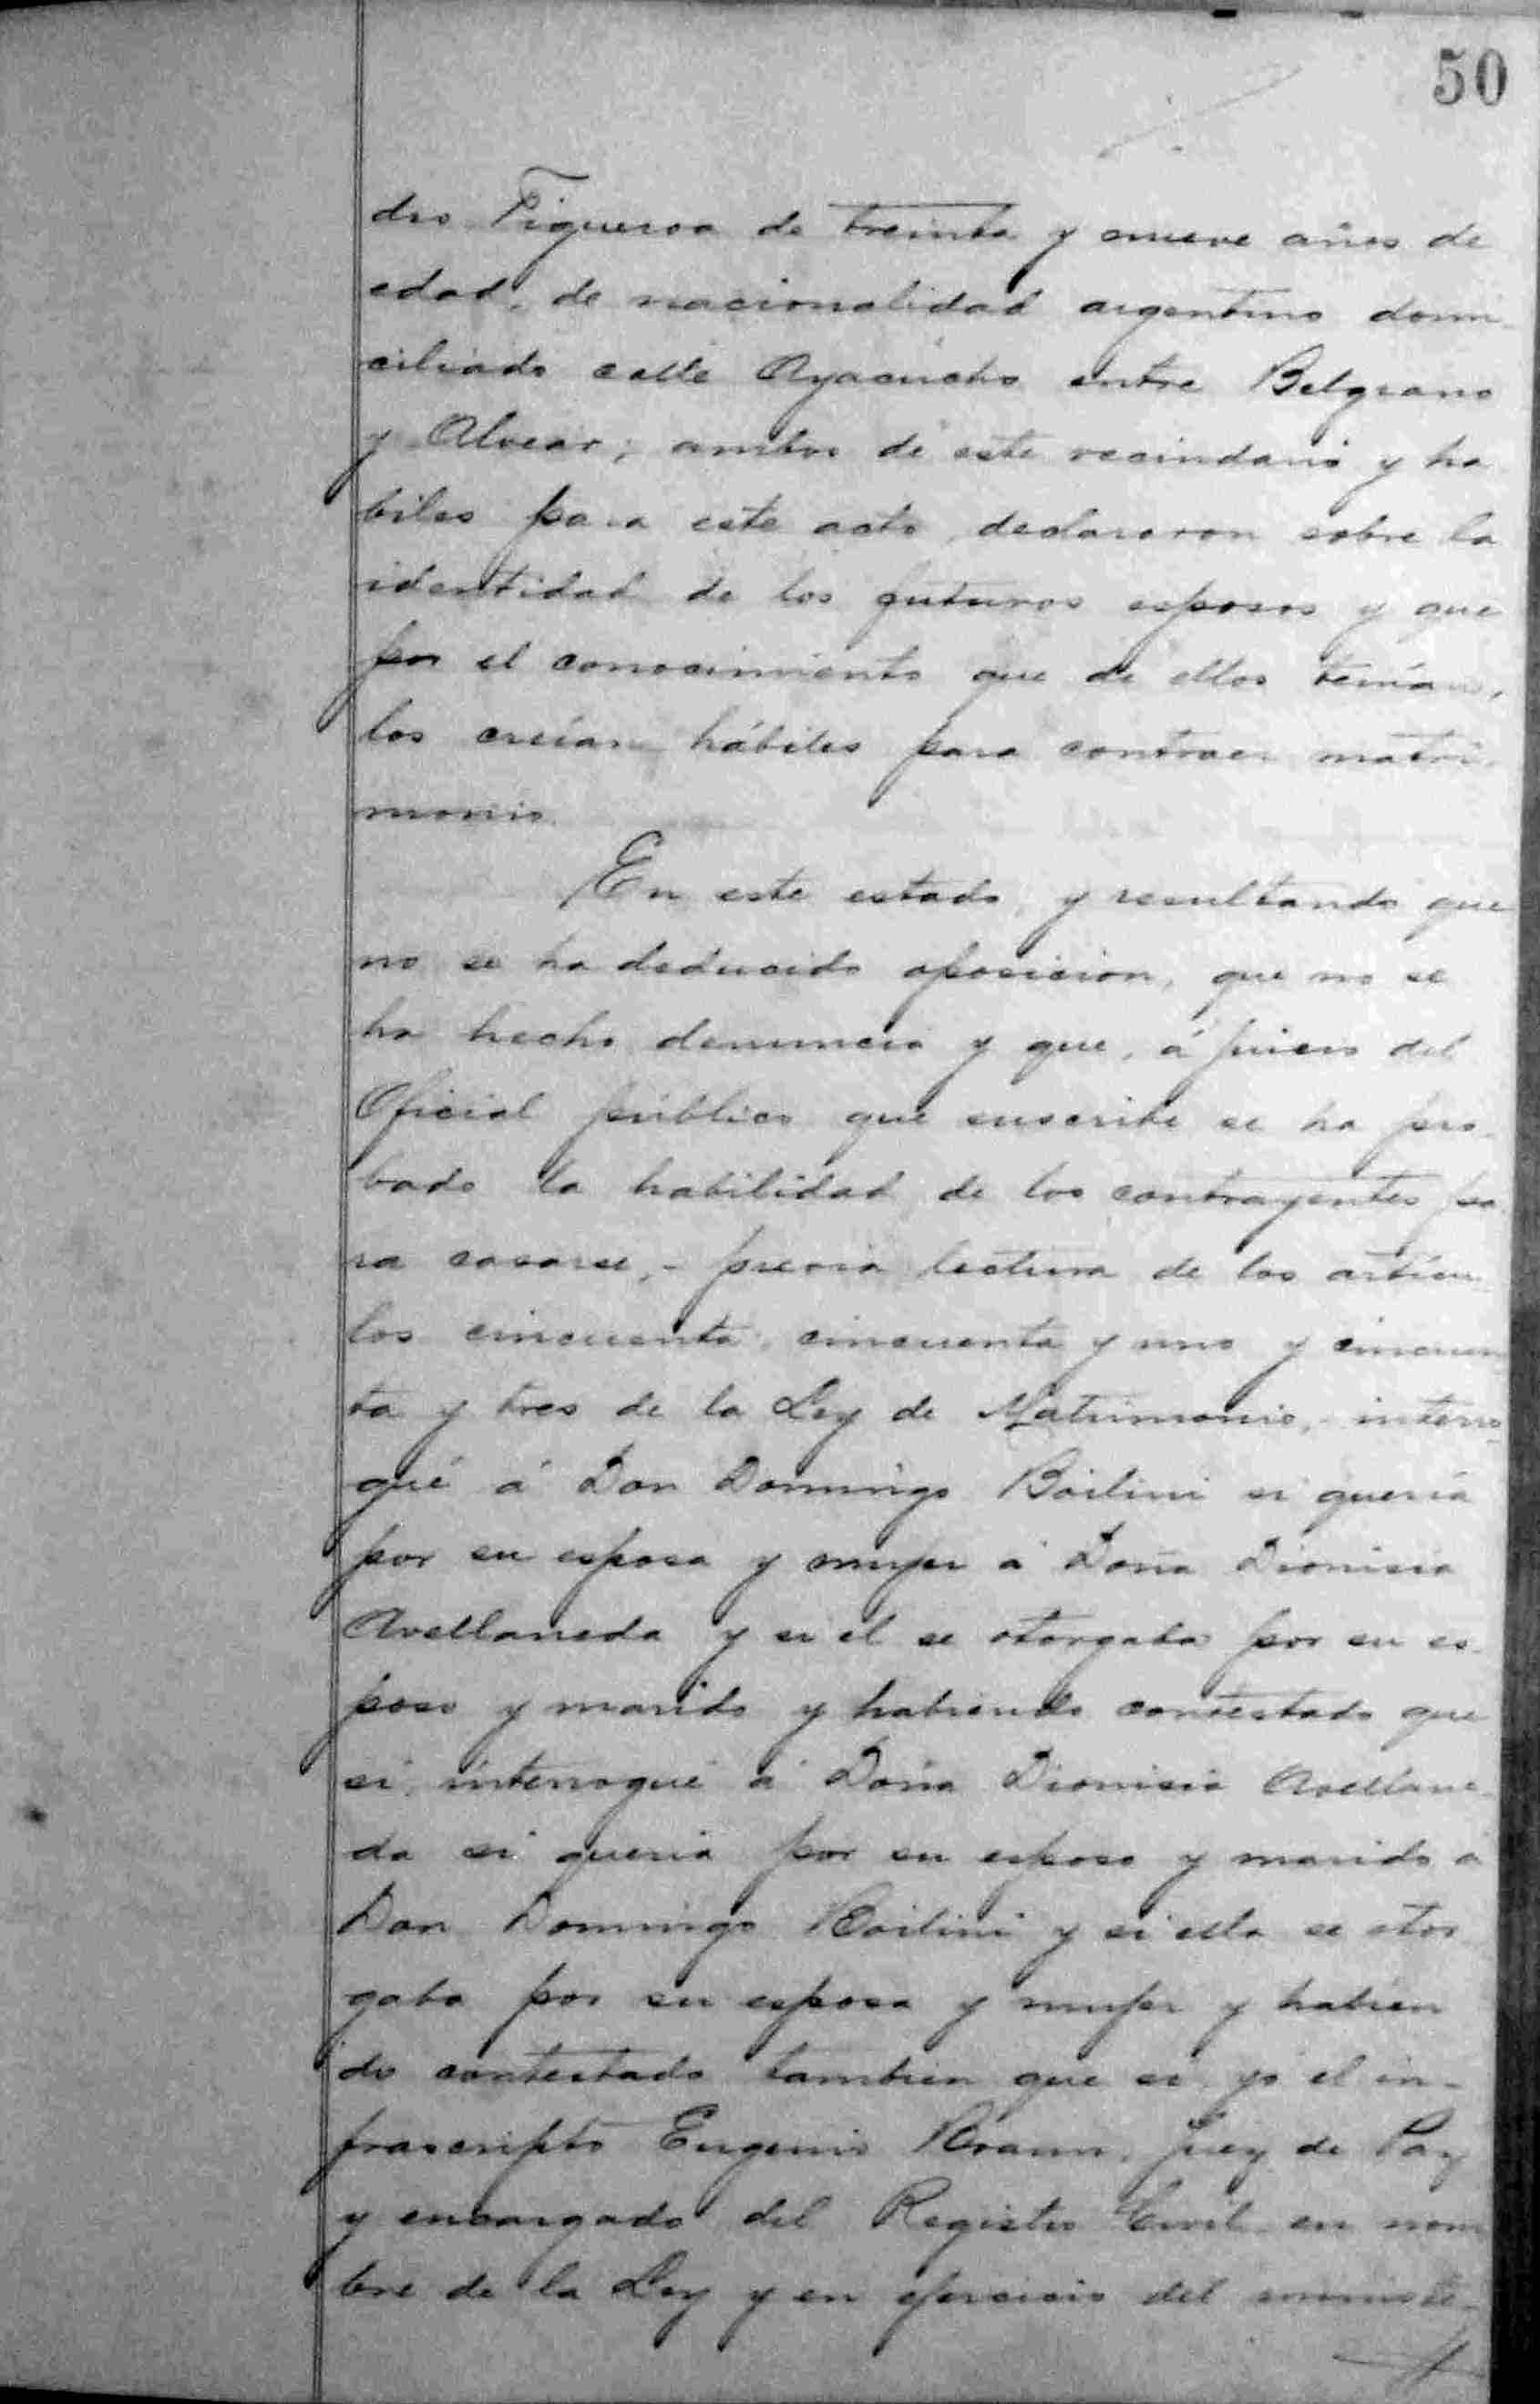 50
dro Figueroa de treinta y nueve años de
edad, de nacionalidad argentino domi-
ciliado calle Ayacucho entre Belgrano
y Alvear; ambos de este vecindario y ha
biles para este acto, declararon sobre la
identidad de los futuros esposos y que
por el conocimiento que de ellos tenían,
los creían hábiles para contraer matri-
monio.
En este estado, y resultando que
no se ha deducido oposicion, que no se
ha hecho denuncia y que, á juicio del
Oficial público que suscribe se ha pro-
bado la habilidad de los contrayentes pa
ra casarse, - previa lectura de los artícu
los cincuenta, cincuenta y uno y cincuen
ta y tres de la Ley de Matrimonio, - interro
gué á Don Domingo Boilini si quería
por su esposa y mujer á Doña Dionisia
Avellaneda y si el se otorgaba por su es-
poso y marido y habiendo contestado que
si, interrogué á Doña Dionisia Avellane-
da si queria por su esposo y marido á
Don Domingo Boilini y si ella se otor
gaba por su esposa y mujer y habien
do contestado tambien que si, yo el in-
frascripto Eugenio Braun, Juez de Paz
y encargado del Registro Civil en nom
bre de la Ley y en ejercicio del